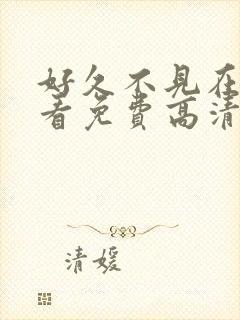 好久不見在
看免費高清
清媛